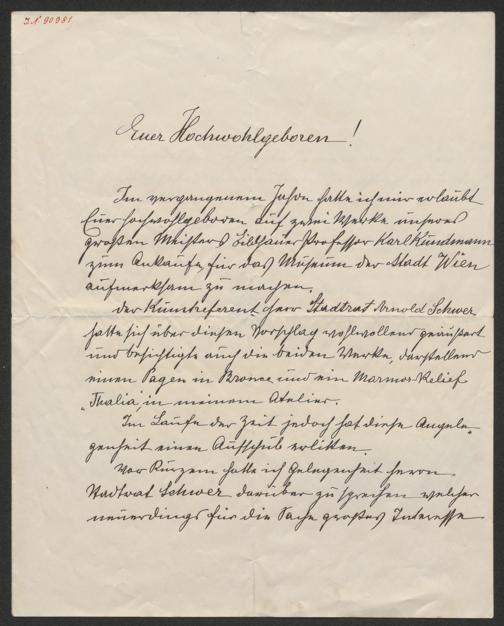 I.N 90981
Euer Hochwohlgeboren!
Im vergangenem Jahre hatte ich mir erlaubt
Euer Hochwohlgeboren auf zwei Werke unseres
großen Meisters Bildhauer Professor Karl Kundmann
zum Ankaufe für das Museum der Stadt Wien
aufmerksam zu machen.
Der Kunstreferent Herr Stadtrat Arnold Schwer
hatte sich über diesen Vorschlag wohlwollend geäussert
und besichtigte auch die beiden Werke, darstellend
einen Pagen in Bronce und ein Marmor-Relief
„Thalia", in meinem Atelier.
Im Laufe der Zeit jedoch hat diese Angele„
genheit einen Aufschub erlitten.
Vor Kurzem hatte ich Gelegenheit Herrn
Stadtrat Schwer darüber zu sprechen welcher
neuerdings für die Sache großes Interesse